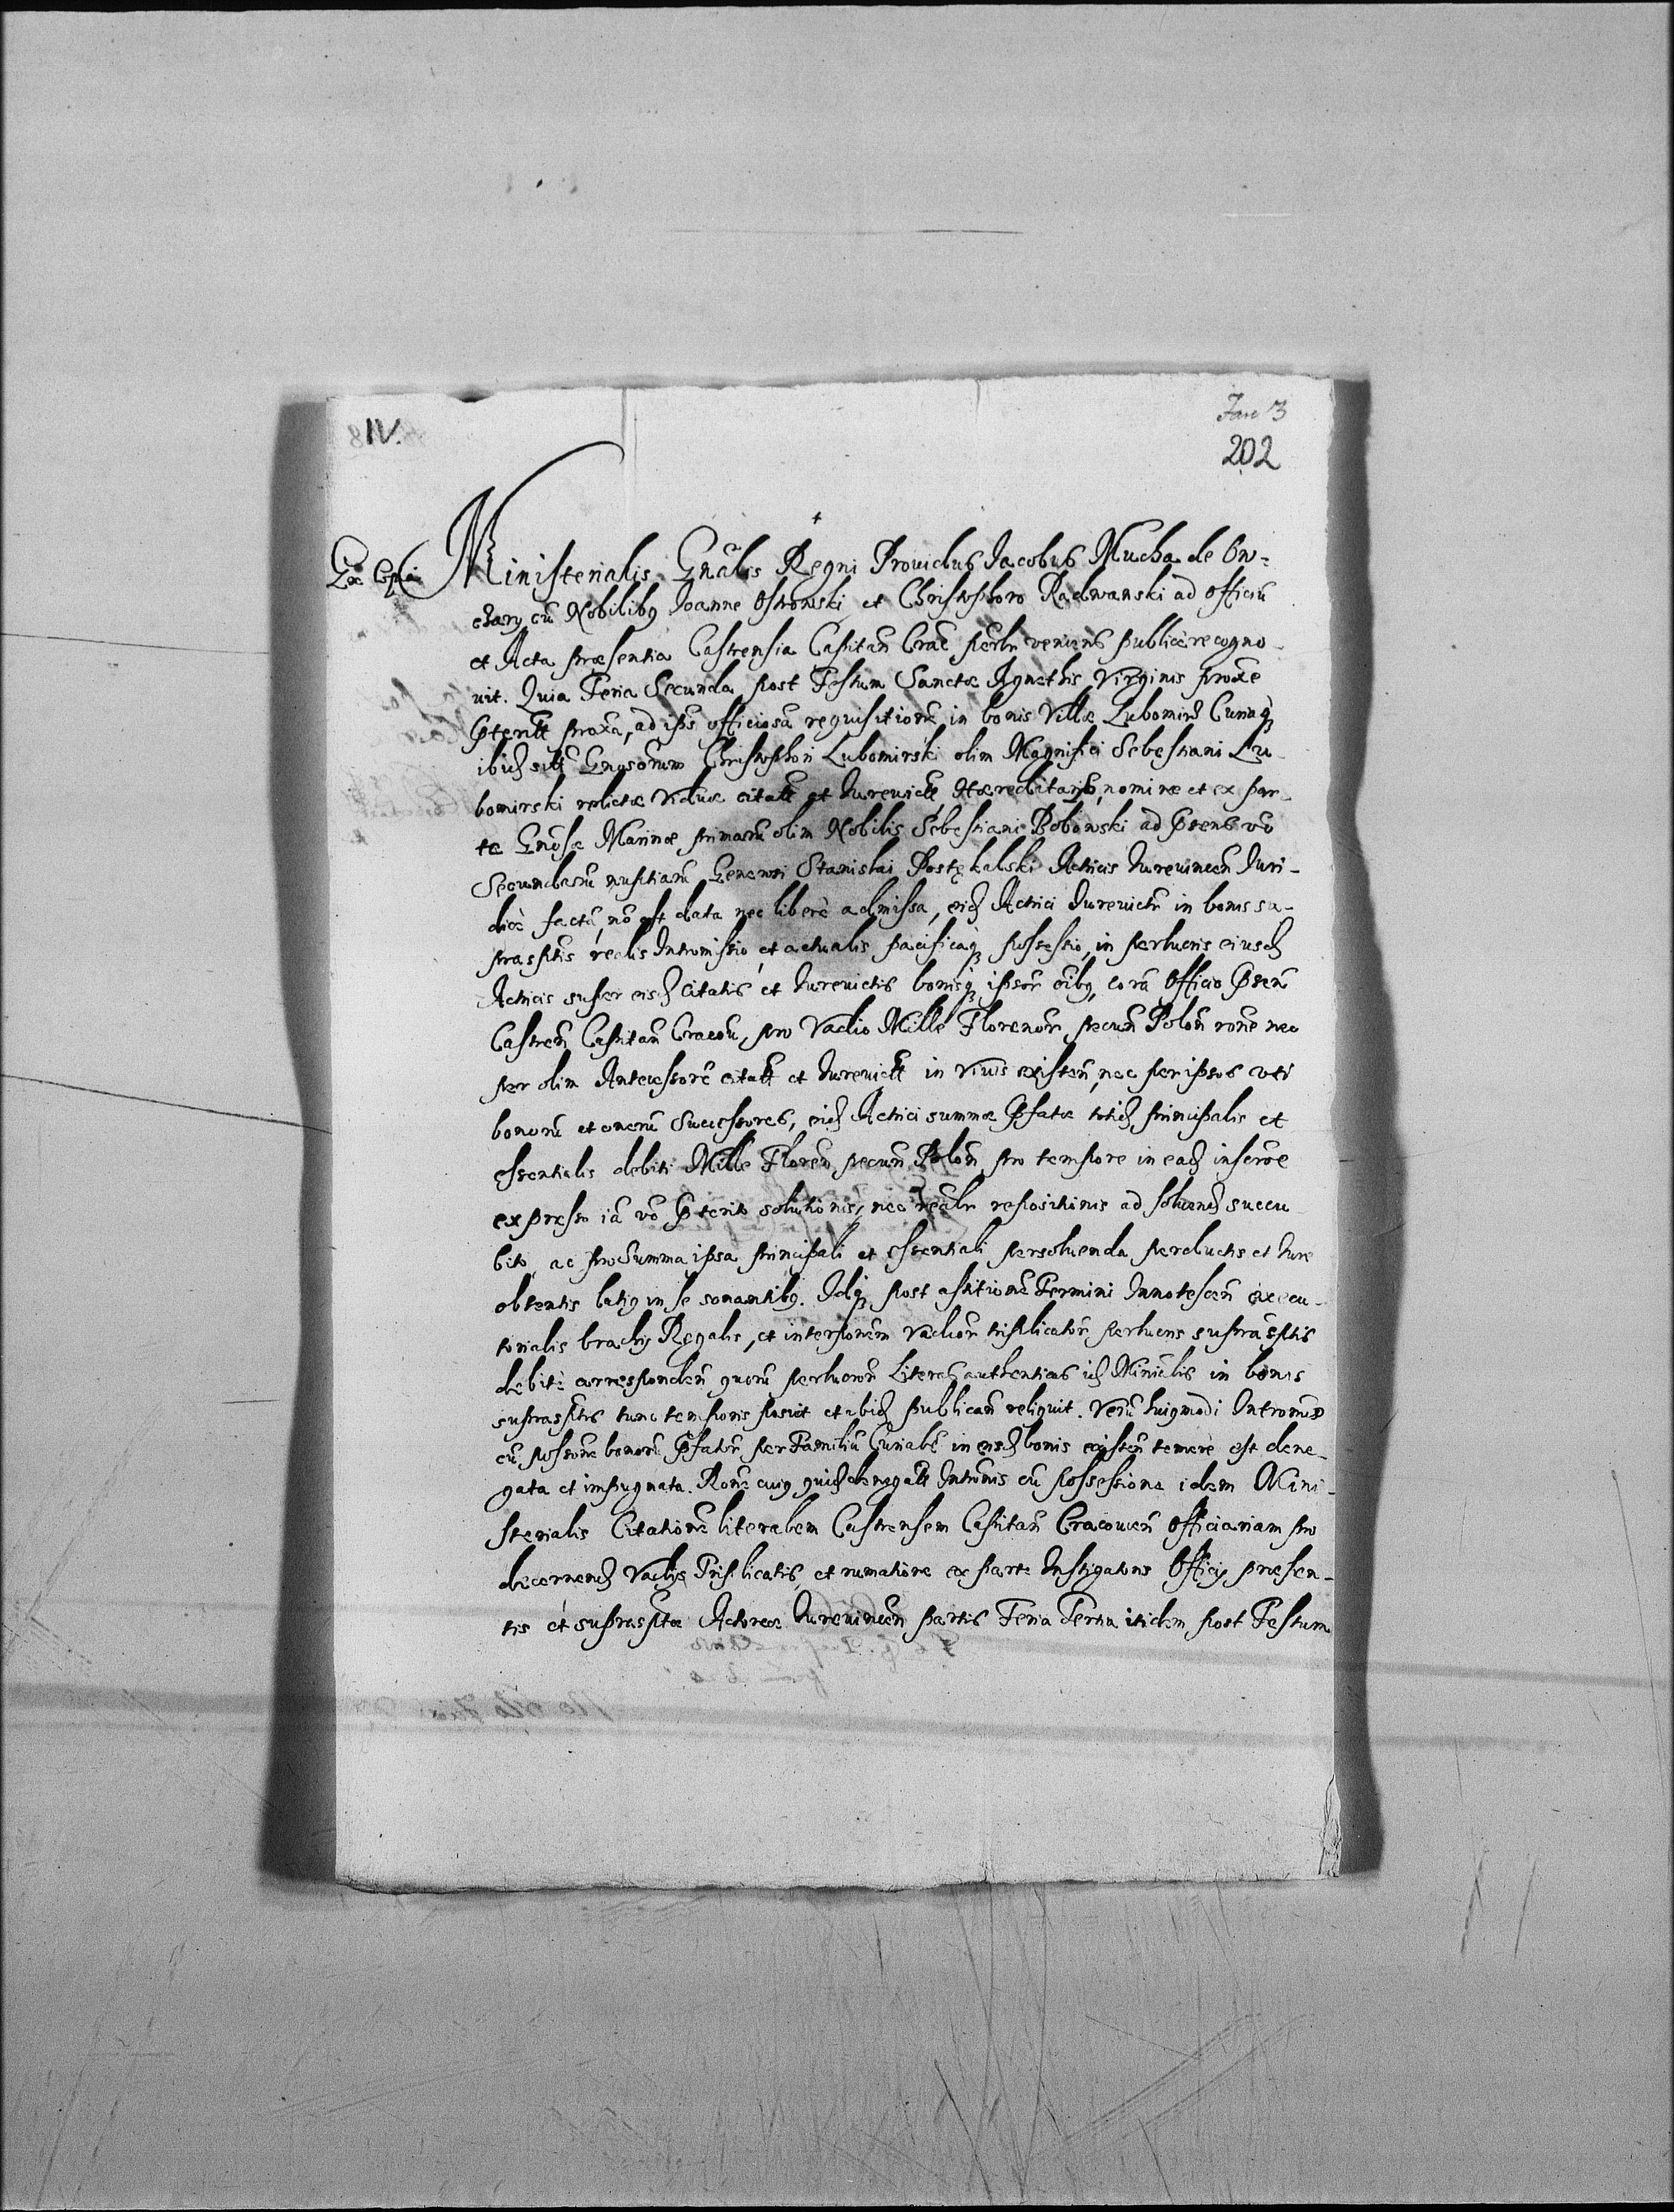 IV.
Fasc 3
202
Ex Copia
Ministerialis Gnãlis Regni Prouidus Jacobus Mucha de Ow-
czary cũ Nobilibq Joanne Ostrowski et Christophoro Radwanski ad officiũ
et Acta præsentia Castrensia Capitañ Craĉ perslr veniens publicè recogno-
uit. Quia Feria Secunda post Festum Sanctæ Agnethis Virginis proxe
pterit proxa, ad ipſs officiosã requisitionẽ in bonis Villæ Lubomirz Curiaq
ibid sitt Gnosorum Christophori Lubomirski olim Magnifici Sebastiani Lu-
bomirski relictæ viduæ citatt et Jurevictt Hæreditarijs, nomine et ex par-
te Gnosæ Marinæ primarũ olim Nobilis Sebastiani Bobowski ad pſens vo
Secundarũ nuptiarũ Generosi Stanislai Postękalski Actricis Jurevincen Juri-
dicè factã, nõ est data nec liberè admissa, eid Actrici Jurevictri in bonis su-
prasptis realis Intromissio, et actualis pacificaq possessio, in perlucris eiusd
Actricis super eisd citatis et Jurevictis bonisq ipsor oĩbq, corã Officio pſen
Castren Capitañ Cracou, pro Vadio Mille Florenor, pecun Polon rone nec
per olim Antecessorẽ citatt et Jurevictt in viuis existeñ, nec per ipsos uti
bonorũ et onerũ Successores, eid Actrici summæ pfatæ totid principalis et
essentialis debiti Mille Floren pecun Polon pro tempore in ead inscrõe
expresso iã vo pterito solutionis, nec realr repositionis ad soluend succu-
bito, ac pro Summa ipsa principali et essentiali persoluenda perductis et Jure
obtentis latiq in se sonantibq. Idq post astitionẽ Termini Innotescen execu-
torialis brachij Regalis, et interponem vadior triplicator, perlucris supraſptis
debitè correspondeñ quorũ perlucror Literas authenticas id Minialis in bonis
suprasptis tunc temporis posuit et ibid publicañ reliquit. Verũ huiqmodi Intromissio
cũ possone bonorũ pfator per Familiã Curialẽ in eisd bonis existeñ temerè est dene-
gata et impugnata. Rone cuiq quid denegatt Intromis cũ possessione idem Mini-
sterialis Citationẽ literalem Castrensem Capitañ Cracouien Officiariam pro
decernend Vadijs Triplicatis, et rumatione ex parte Instigatoris Officij præsen-
tis et suprasptæ Actoreæ Jurevincen partis Feria Tertia itidem post Festum